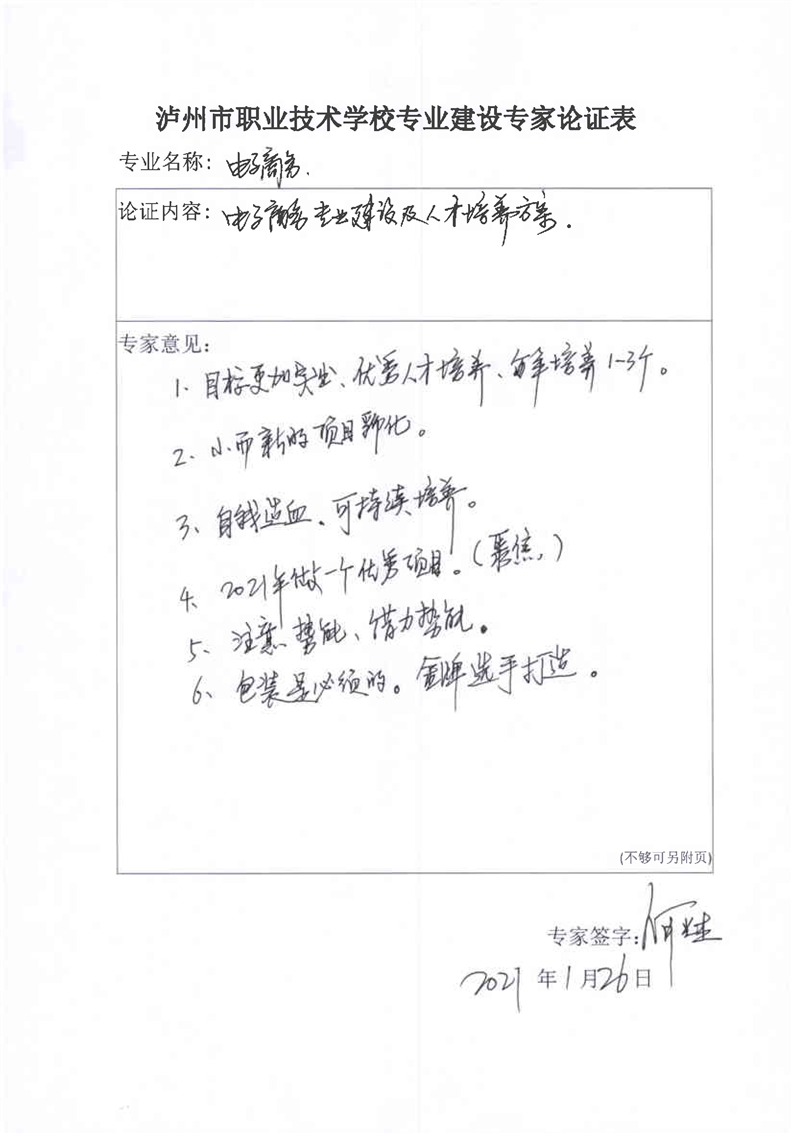 泸州市职业技术学校专业建设专家论证表
专业名称：电子商务.
论证内容：电子商务专业建设及人才培养方案.
专家意见：
1. 目标更加突出、优秀人才培养、每年培养1-3个。
2. 小而新的项目孵化。
3、自我造血、可持续培养。
4、2021年做一个优秀项目。（聚焦，）
5、注意势能、借力势能。
6、包装是必须的。金牌选手打造。
(不够可另附页)
专家签字：何
2021年1月26日